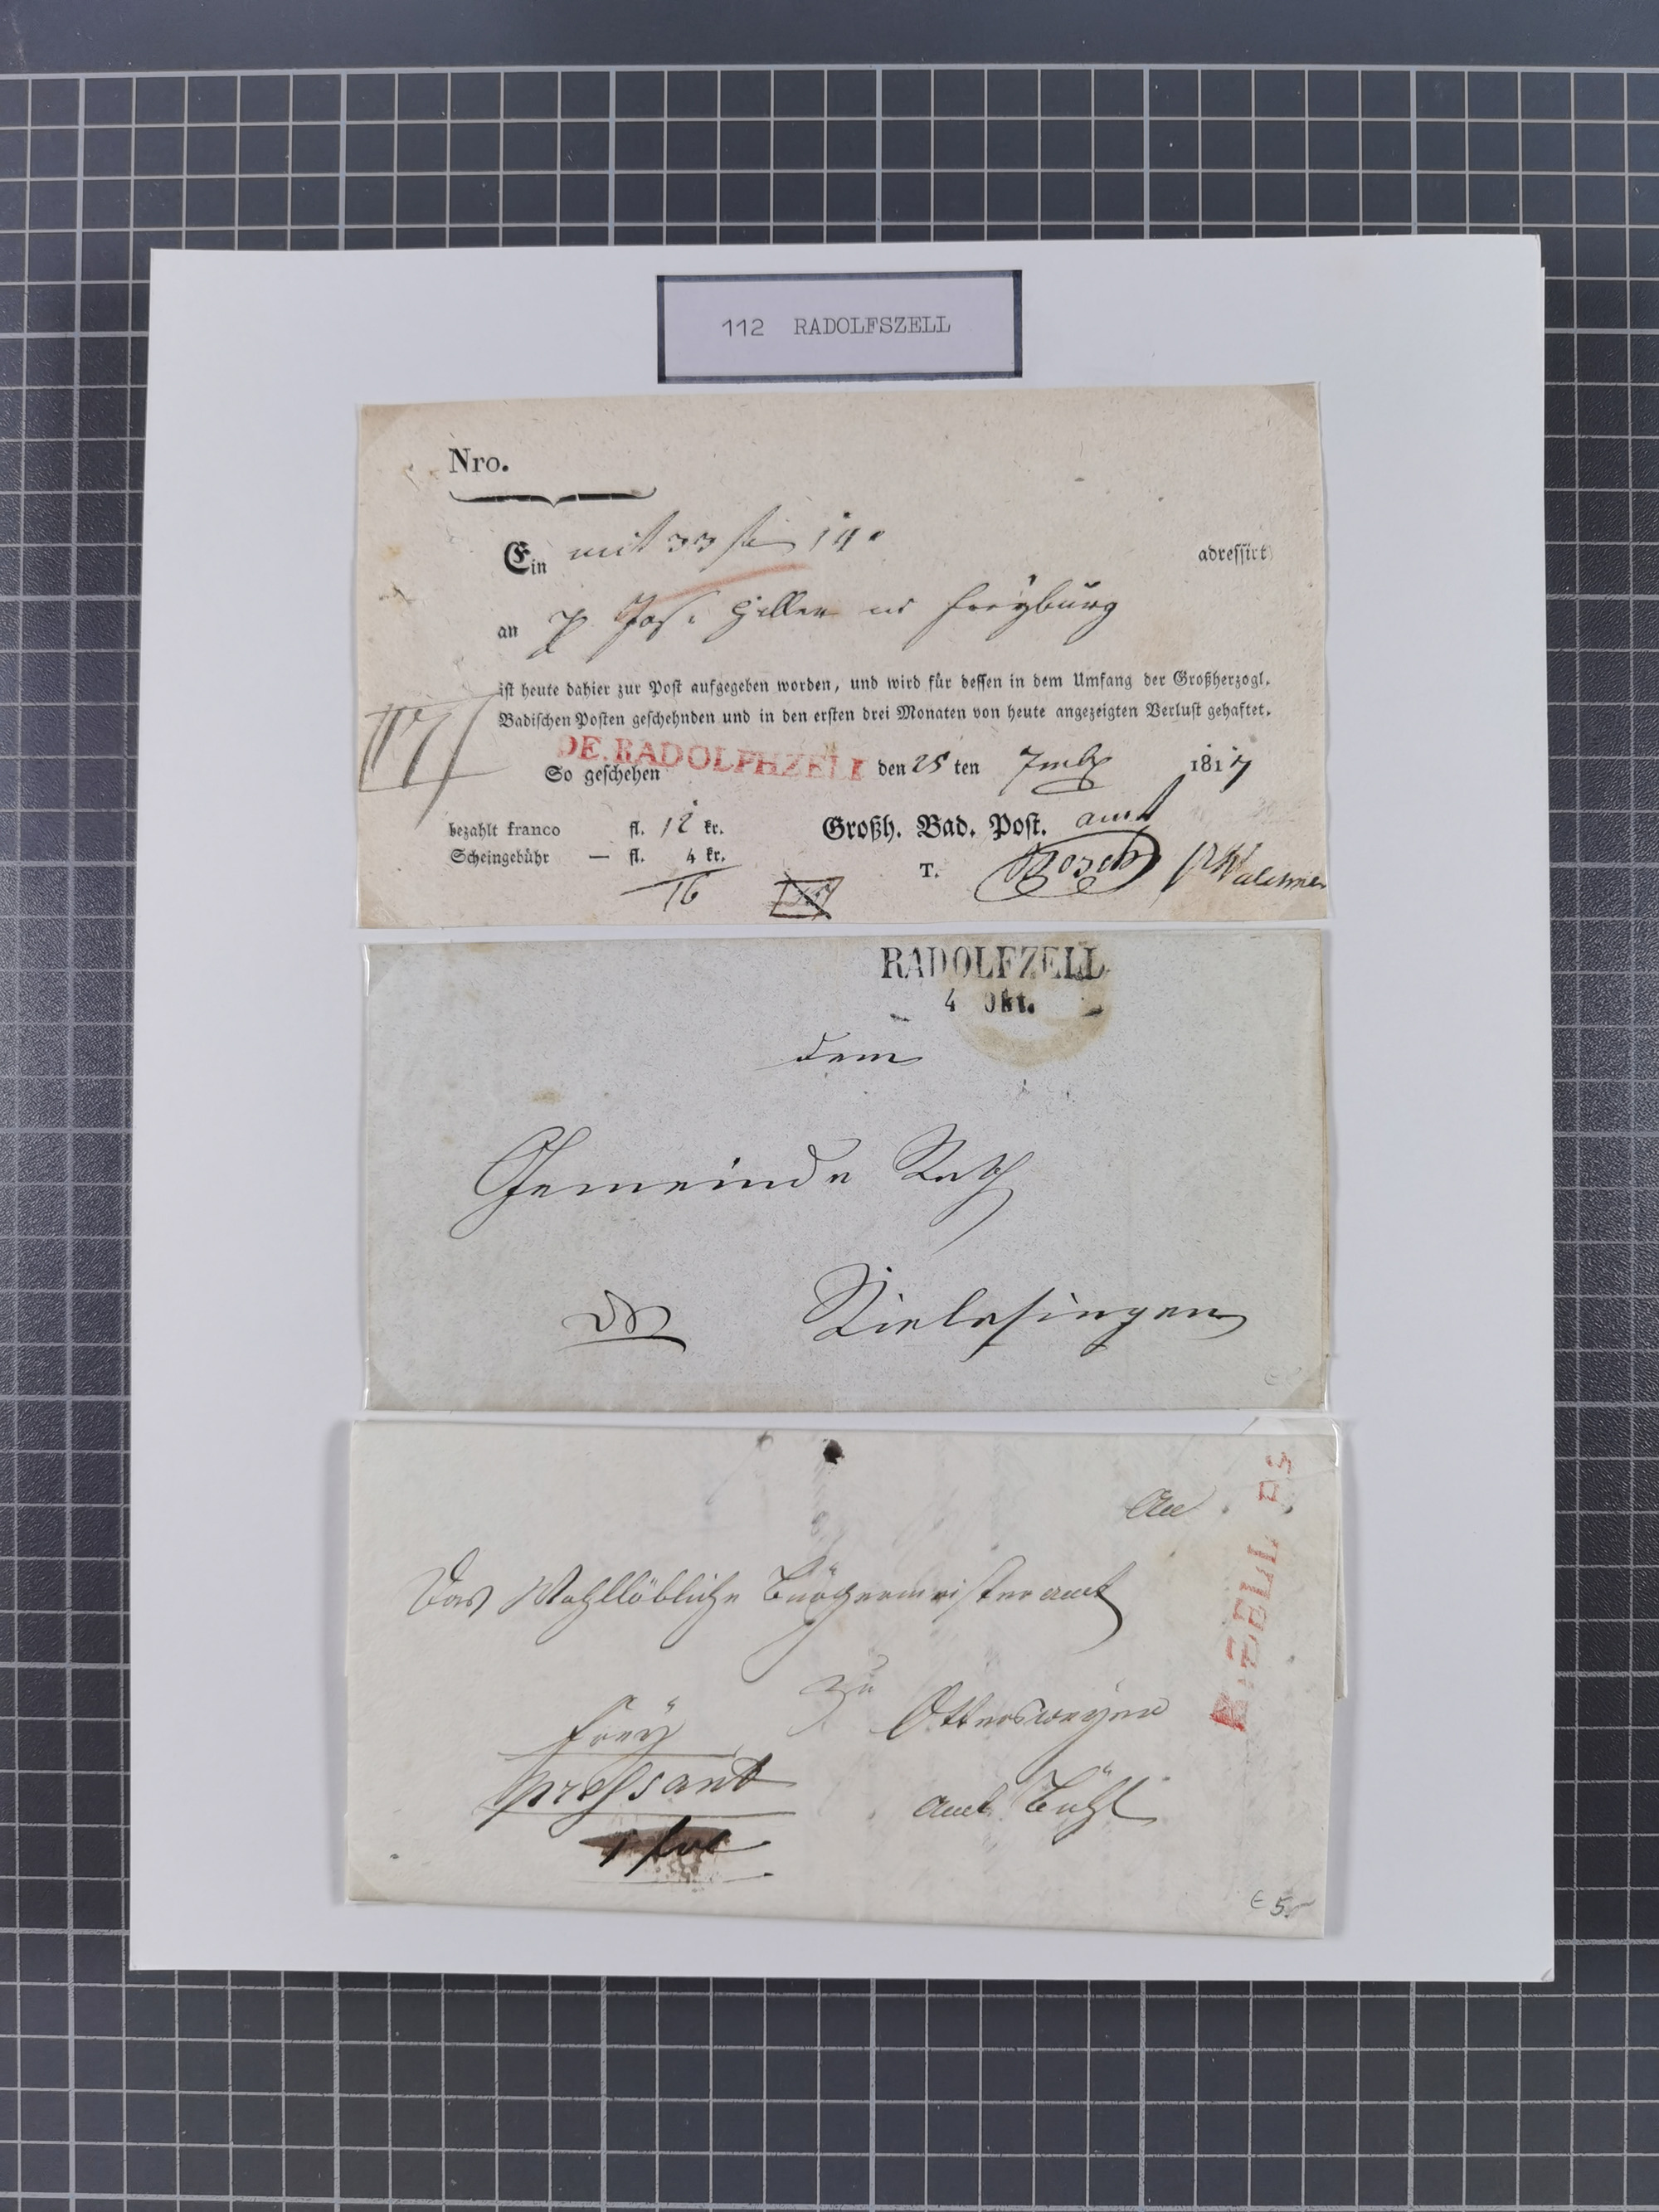 112 RADOLFSZELL
Nro.
Ein mit 33 adressirt
an Jos. Haller in Freyburg
ist heute dahier zur Post aufgegeben worden, und wird für dessen in dem Umfang der Großherzogl.
Badischen Posten geschehnden und in den ersten drei Monaten von heute angezeigten Verlust gehaftet.
DE.RADOLPHZELL
So geschehen den 25 ten 7mbr 1817
bezahlt franco fl. 12 kr. Großh. Bad. Post. amt
Scheingebühr — fl. 4 kr. T.
16
RADOLFZELL
4 Okt.
dem
Gemeinde Rath
Rielasingen
An
Das Wohllöbliche Bürgermeisteramt
zu Ottersweyer
frey
pressant
Amt Bühl
R.ZELL
€ 5.